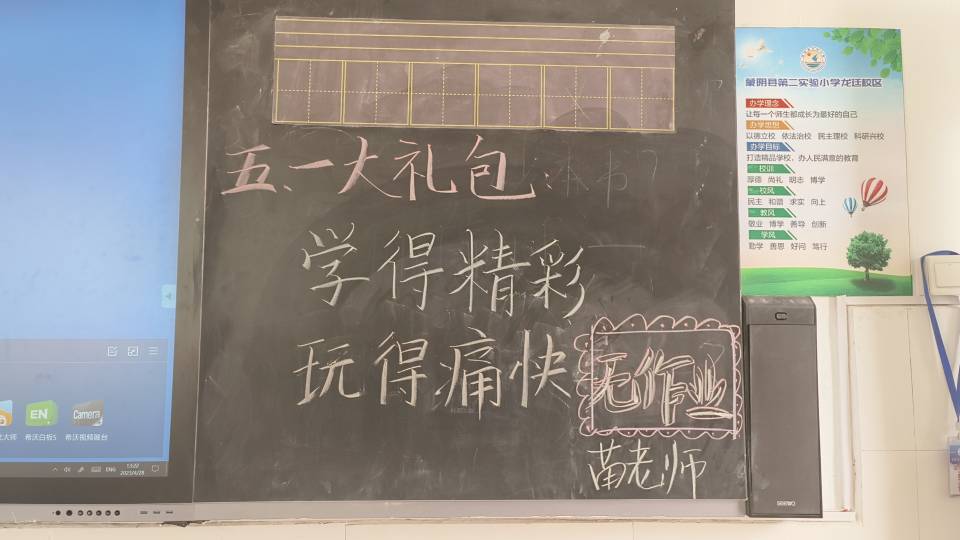 五、一大礼包:
学得精彩
玩得痛快
无作业
苗老师
蒙阴县第二实验小学龙廷校区
办学理念
让每一个师生都成长为最好的自己
办学思想
以德立校 依法治校 民主理校 科研兴校
办学目标
打造精品学校,办人民满意的教育
校训
厚德 尚礼 明志 博学
校风
民主 和谐 求实 向上
教风
敬业 博学 善导 创新
学风
勤学 善思 好问 笃行
EN
Camera
希沃白板5
希沃视频展台
ENG
13:22
2023/4/28
seewo